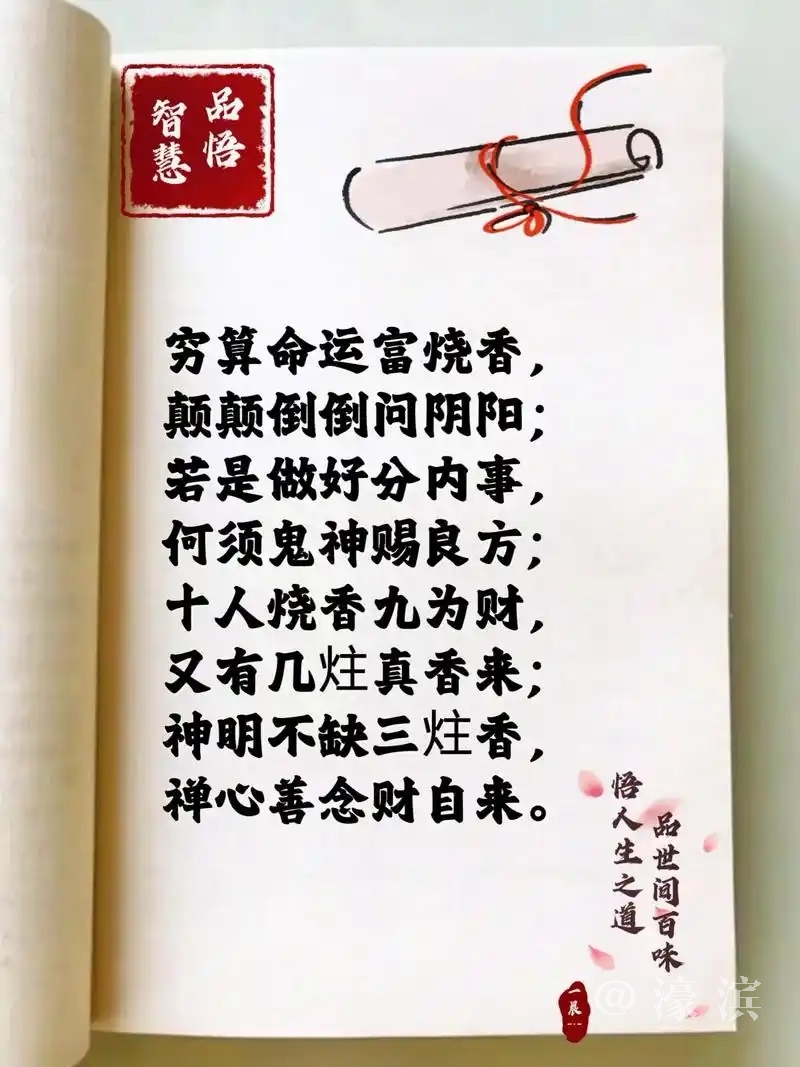 品悟
智慧
穷算命运富烧香，
颠颠倒倒问阴阳；
若是做好分内事，
何须鬼神赐良方；
十人烧香九为财，
又有几炷真香来；
神明不缺三炷香，
禅心善念财自来。
品世间百味
悟人生之道
一晨
@濠滨